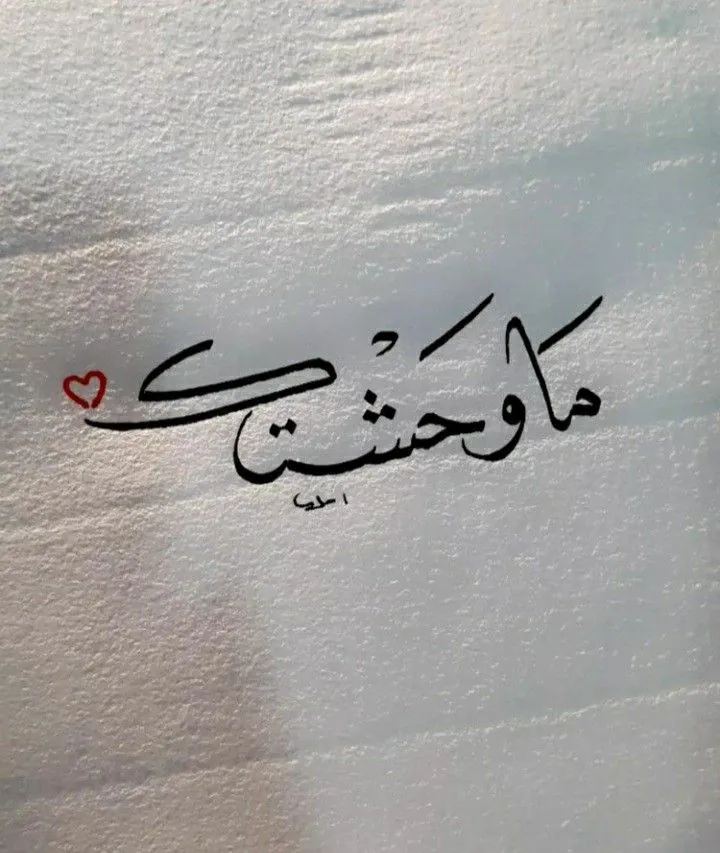 ما وحَشْتك